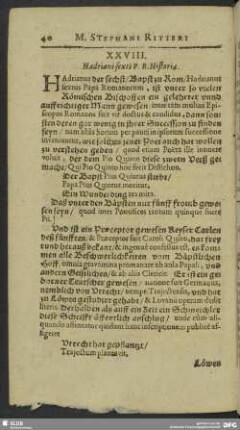 40 M. STEPHANI RITTERI
XXVIII.
Hadriani sexti P. R. Historia.
Hadrianus der sechst/ Bapst zu Rom/ Hadrianus
sextus Papa Romanorum, ist vnter so vielen
Römischen Bischoffen ein gelehrter vnnd
auffrichtiger Mann gewesen/ inter tam multos Epi-
scopos Romanos fuit vir doctus & candidus, dann son-
sten deren gar wenig in jhrer Succession zu finden
seyn/ nam alias horum per pauci in ipsorum successione
inveniuntur, wie solches jener Poet auch hat wollen
zu verstehen geben/ quod etiam Poëta ille innuere
voluit, der dem Pio Quinto diese zween Verß ge-
macht/ Qui Pio Quinto hoc fecit Distichon.
Der Bapst Pius Quintus starbe/
Papa Pius Quintus moritur,
Ein Wunderding
Daß vnter den Bäpsten nur fünff fromb gewe-
sen seyn/ quod inter Pontifices tantum quinque fuere
Pii.
Vnd ist ein Præceptor gewesen Keyser Carlen
deß fünfften, & Præceptor fuit Caroli Quinti, hat frey
rund herauß bekant/ & ingenuè confessus est, es kom-
men alle Beschwerlichkeiten vom Bäpstlichen
Hoff, omnia gravamina promanare ab aula Papali, vnd
andern Geistlichen/ & ab aliis Clericis. Er ist ein ge-
borner Teutscher gewesen/ natione fuit Germanus,
nemblich von Vtrecht/ nempe Trajectensis, vnd hat
zu Löwen gestudiert gehabt/ & Lovanii operam dedit
literis. Derhalben als auff ein Zeit ein Schmeichler
diese Schrifft öffentlich anschlug/ unde cùm ali-
quando assentator quidam hanc inscriptionem publicè af-
figeret
Vtrecht hat gepflantzt/
Trajectum plantavit,
Löwen